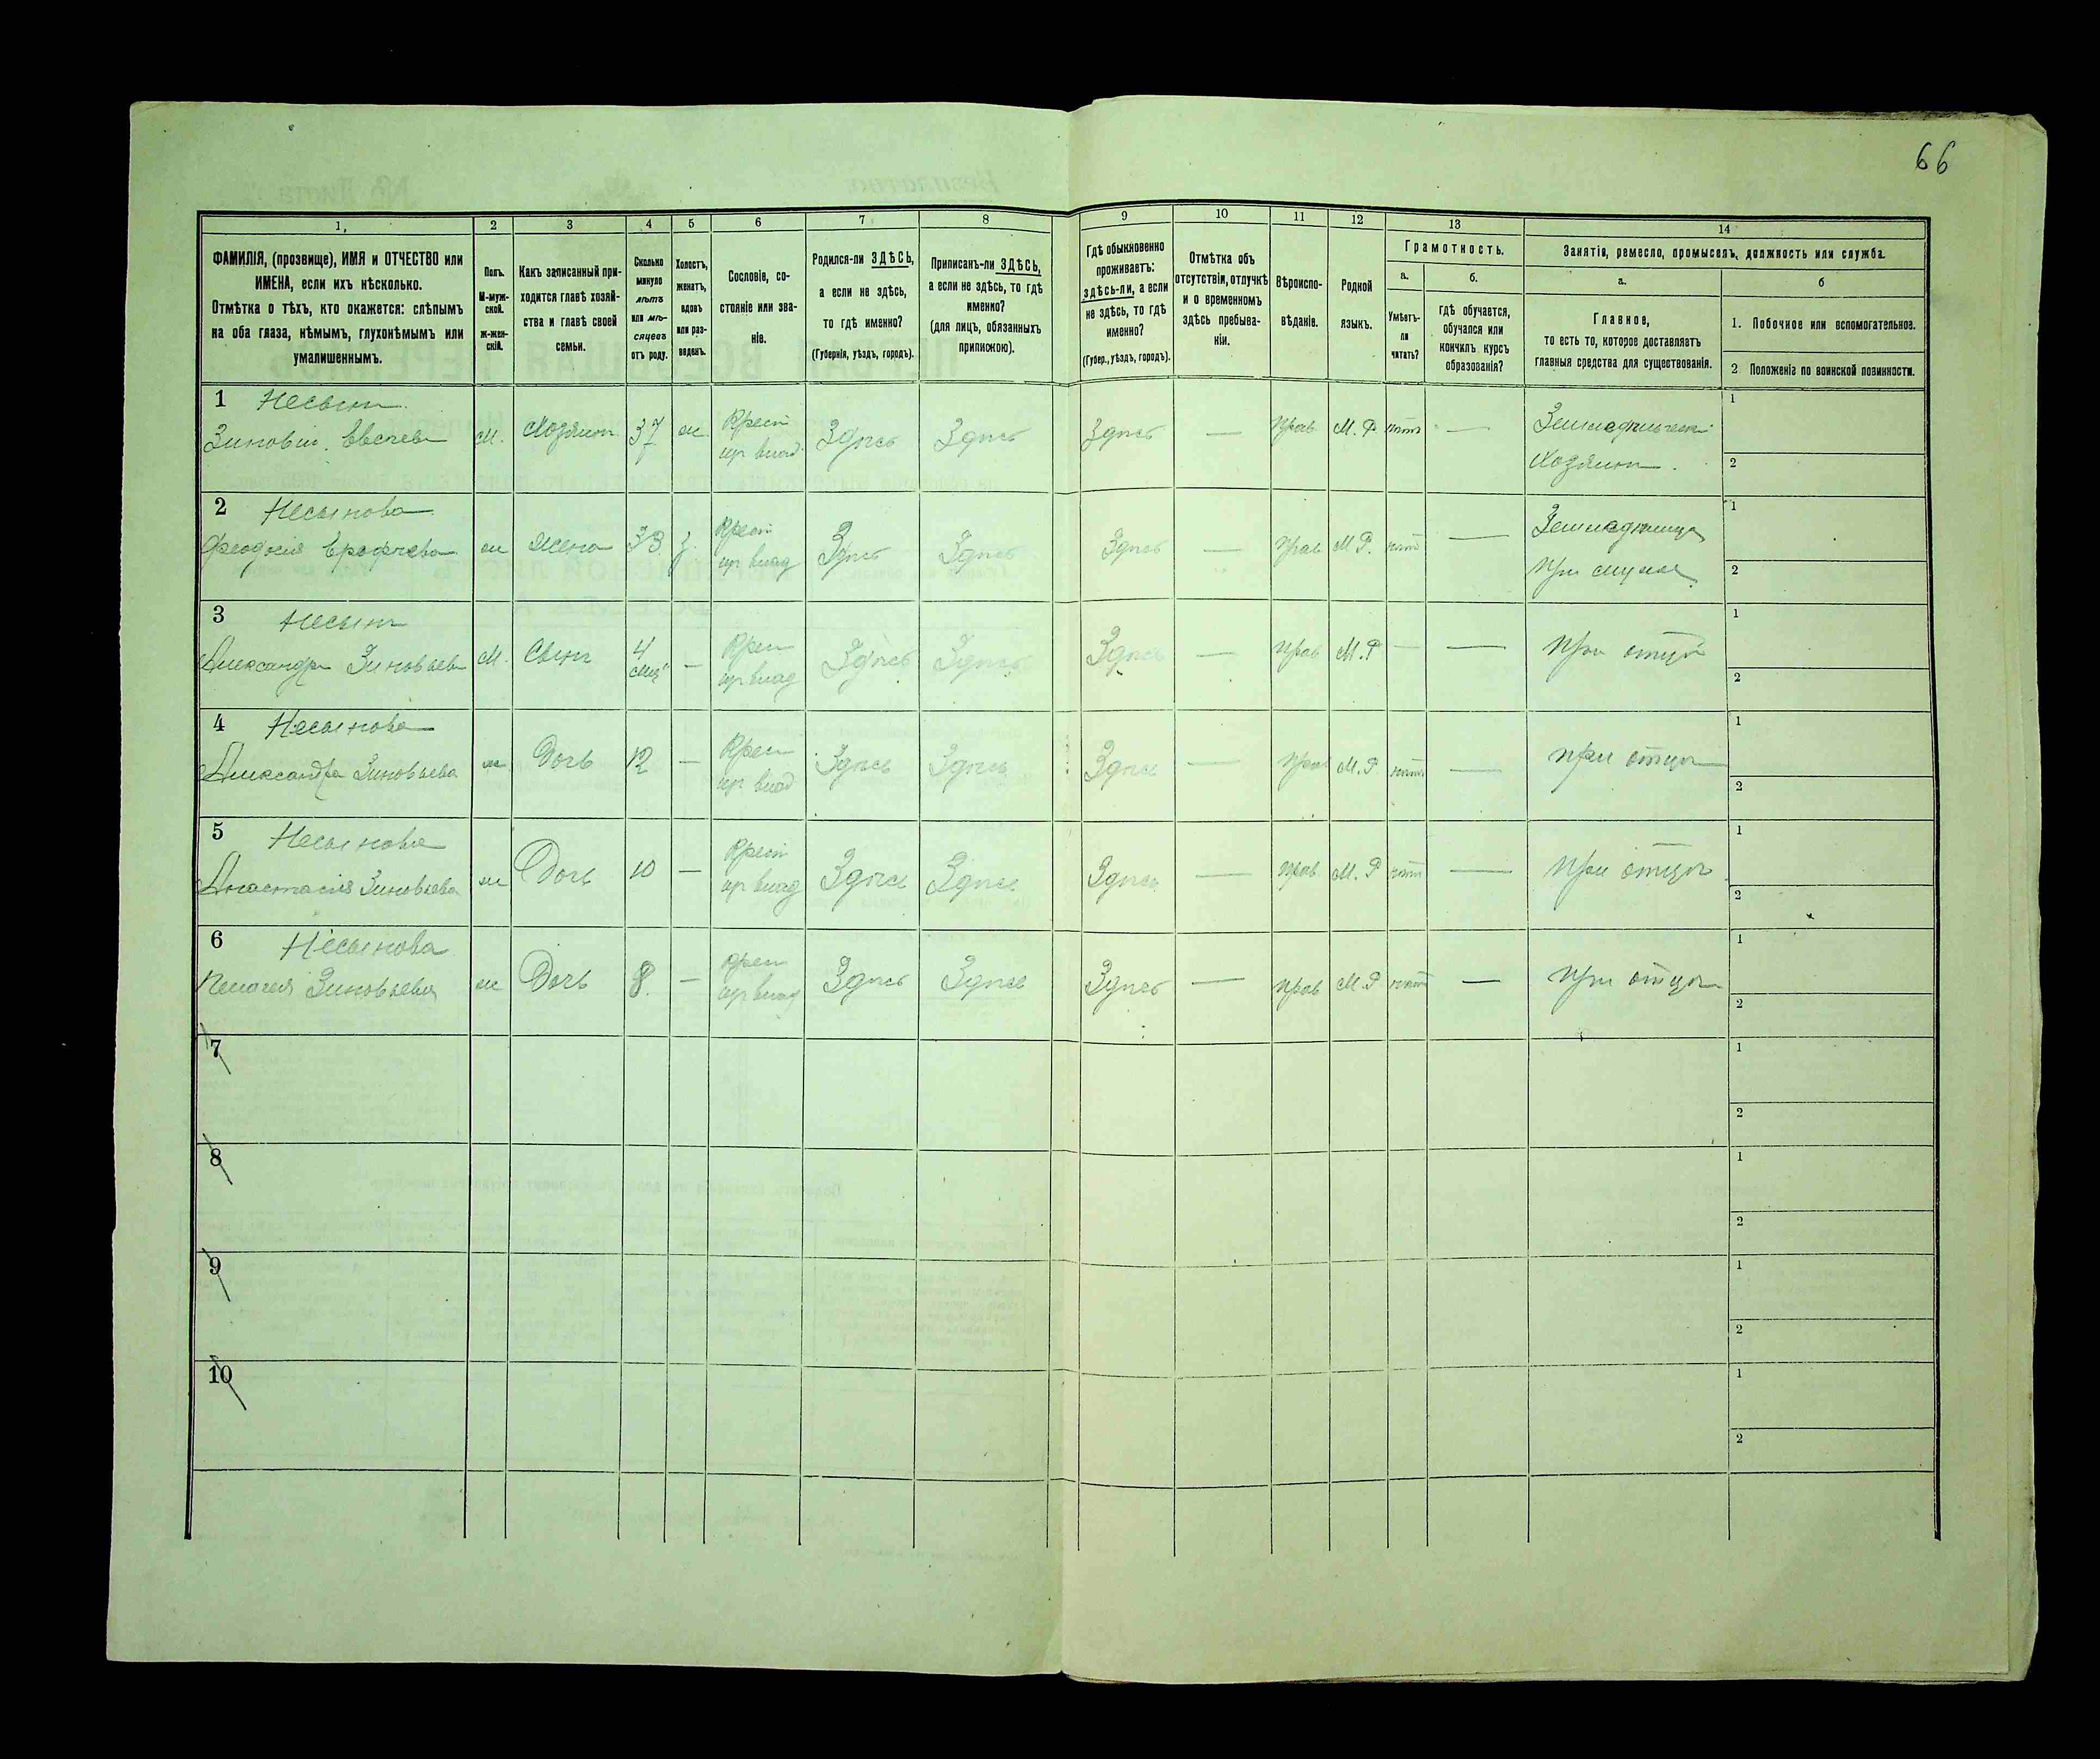 66
1, 2 3 4 5 6 7 8 9 10 11 12 13 14
ФАМИЛІЯ, (прозвище), ИМЯ и ОТЧЕСТВО или
ИМЕНА, если ихъ нѣсколько.
Отмѣтка о тѣхъ, кто окажется: слѣпымъ
на оба глаза, нѣмымъ, глухонѣмымъ или
умалишеннымъ.
Полъ.
М-муж-
ской.
ж-жен-
скій.
Какъ записанный при-
ходится главѣ хозяй-
ства и главѣ своей
семьи.
Сколько
минуло
лѣтъ
или мѣ-
сяцевъ
отъ роду.
Холостъ,
женатъ,
вдовъ
или раз-
веденъ.
Сословіе, со-
стояніе или зва-
ніе.
Родился-ли ЗДѢСЬ,
а если не здѣсь,
то гдѣ именно?
(Губернія, уѣздъ, городъ).
Приписанъ-ли ЗДѢСЬ,
а если не здѣсь, то гдѣ
именно?
(для лицъ, обязанныхъ
припискою).
Гдѣ обыкновенно
проживаетъ:
здѣсь-ли, а если
не здѣсь, то гдѣ
именно?
(Губер., уѣздъ, городъ).
Отмѣтка объ
отсутствіи, отлучкѣ
и о временномъ
здѣсь пребыва-
ніи.
Вѣроиспо-
вѣданіе.
Родной
языкъ.
Грамотность.
а.
Умѣетъ-
ли
читать?
б.
гдѣ обучается,
обучался или
кончилъ курсъ
образованія?
Занятіе, ремесло, промыселъ, должность или служба.
а.
Главное,
то есть то, которое доставляетъ
главныя средства для существованія.
б
1. Побочное или вспомогательное.
2 Положеніе по воинской повинности.
1 Несынъ
Зиновій Евсѣевъ м. Хозяинъ 37 ж Крест Здѣсь Здѣсь Здѣсь — прав М. Р нѣтъ — Земледѣлецъ
Хозяинъ.
1
2
2 Несынова
Феодосія Ерофѣева ж Жена 33 з. Крест Здѣсь Здѣсь Здѣсь — прав М Р. нѣтъ — Земледѣлица
при мужѣ
1
2
3 Несынъ
Александръ Зиновьевъ М. Сынъ 4 — Крест Здѣсь Здѣсь Здѣсь — прав М. Р — — при отцѣ
мѣц
1
2
4 Несынова
Александра Зиновьева ж Дочь 12 — Крест Здѣсь Здѣсь Здѣсь — прав М. Р нѣтъ — при отцѣ
1
2
5 Несынова
Анастасія Зиновьева ж Дочь 10 — Крест Здѣсь Здѣсь Здѣсь — прав М. Р нѣтъ — при отцѣ
1
2
6 Несынова
Пелагея Зиновьева ж Дочь 8. — Крест Здѣсь Здѣсь Здѣсь — прав М. Р нѣтъ — при отцѣ
1
2
7
1
2
8
1
2
9
1
2
10
1
2